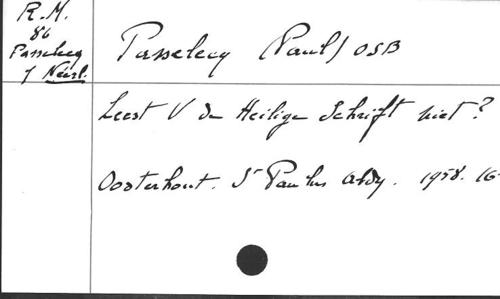 R.M.
86
Passelecq
7 Néerl.
Passelecq (Paul) OSB
Leest U de Heilige Schrift niet?
Oosterhout. St Paulus Abdy. 1958. 16